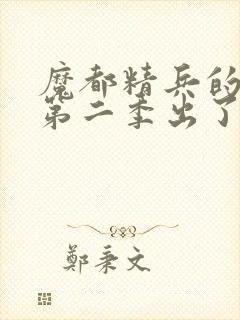 魔都精兵的
第二季出了
鄭秉文